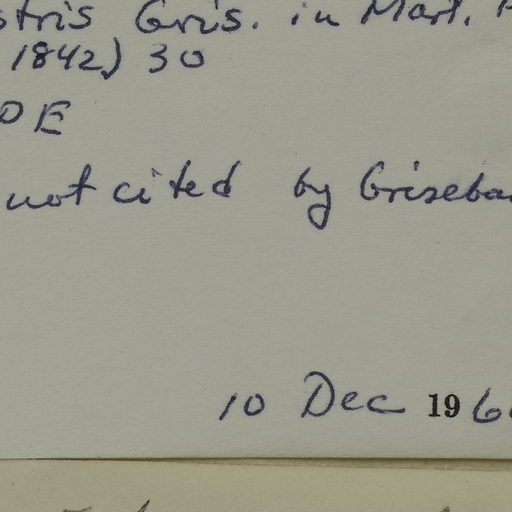 stris Gris. in Mart.
1842) 30
DE
not cited by Griseba
10 Dec 196